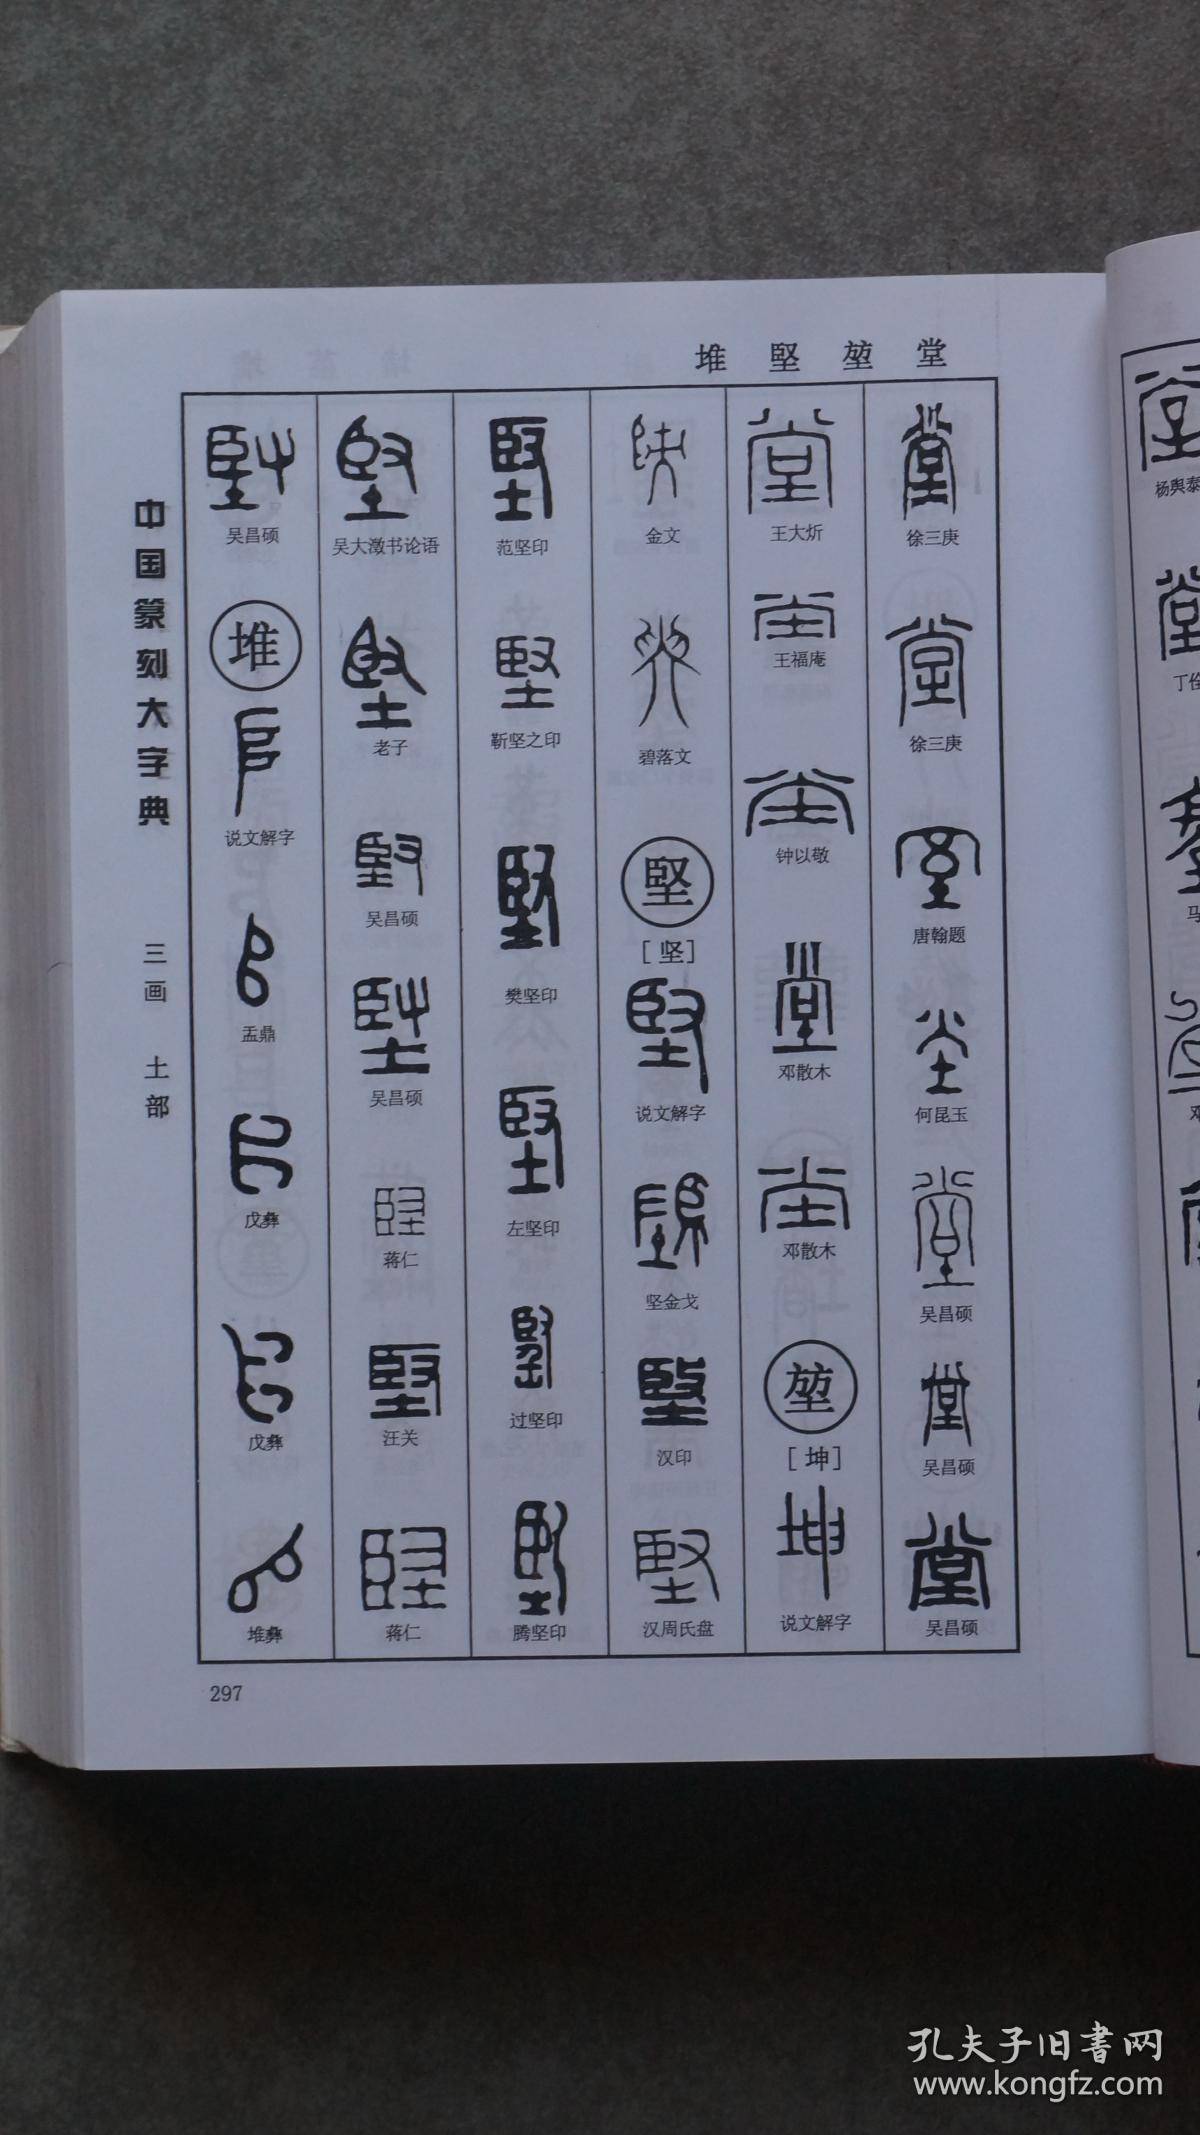 堆 堅 堃 堂
中国篆刻大字典
三画 土部
徐三庚
徐三庚
唐翰题
何昆玉
吴昌硕
吴昌硕
吴昌硕
王大炘
王福庵
钟以敬
邓散木
邓散木
堃
[坤]
说文解字
金文
碧落文
堅
[坚]
说文解字
坚金戈
汉印
汉周氏盘
范坚印
靳坚之印
樊坚印
左坚印
过坚印
腾坚印
吴大澂书论语
老子
吴昌硕
吴昌硕
蒋仁
汪关
蒋仁
吴昌硕
堆
说文解字
盂鼎
戊彝
戊彝
堆彝
297
杨舆泰
孔夫子旧书网
www.kongfz.com